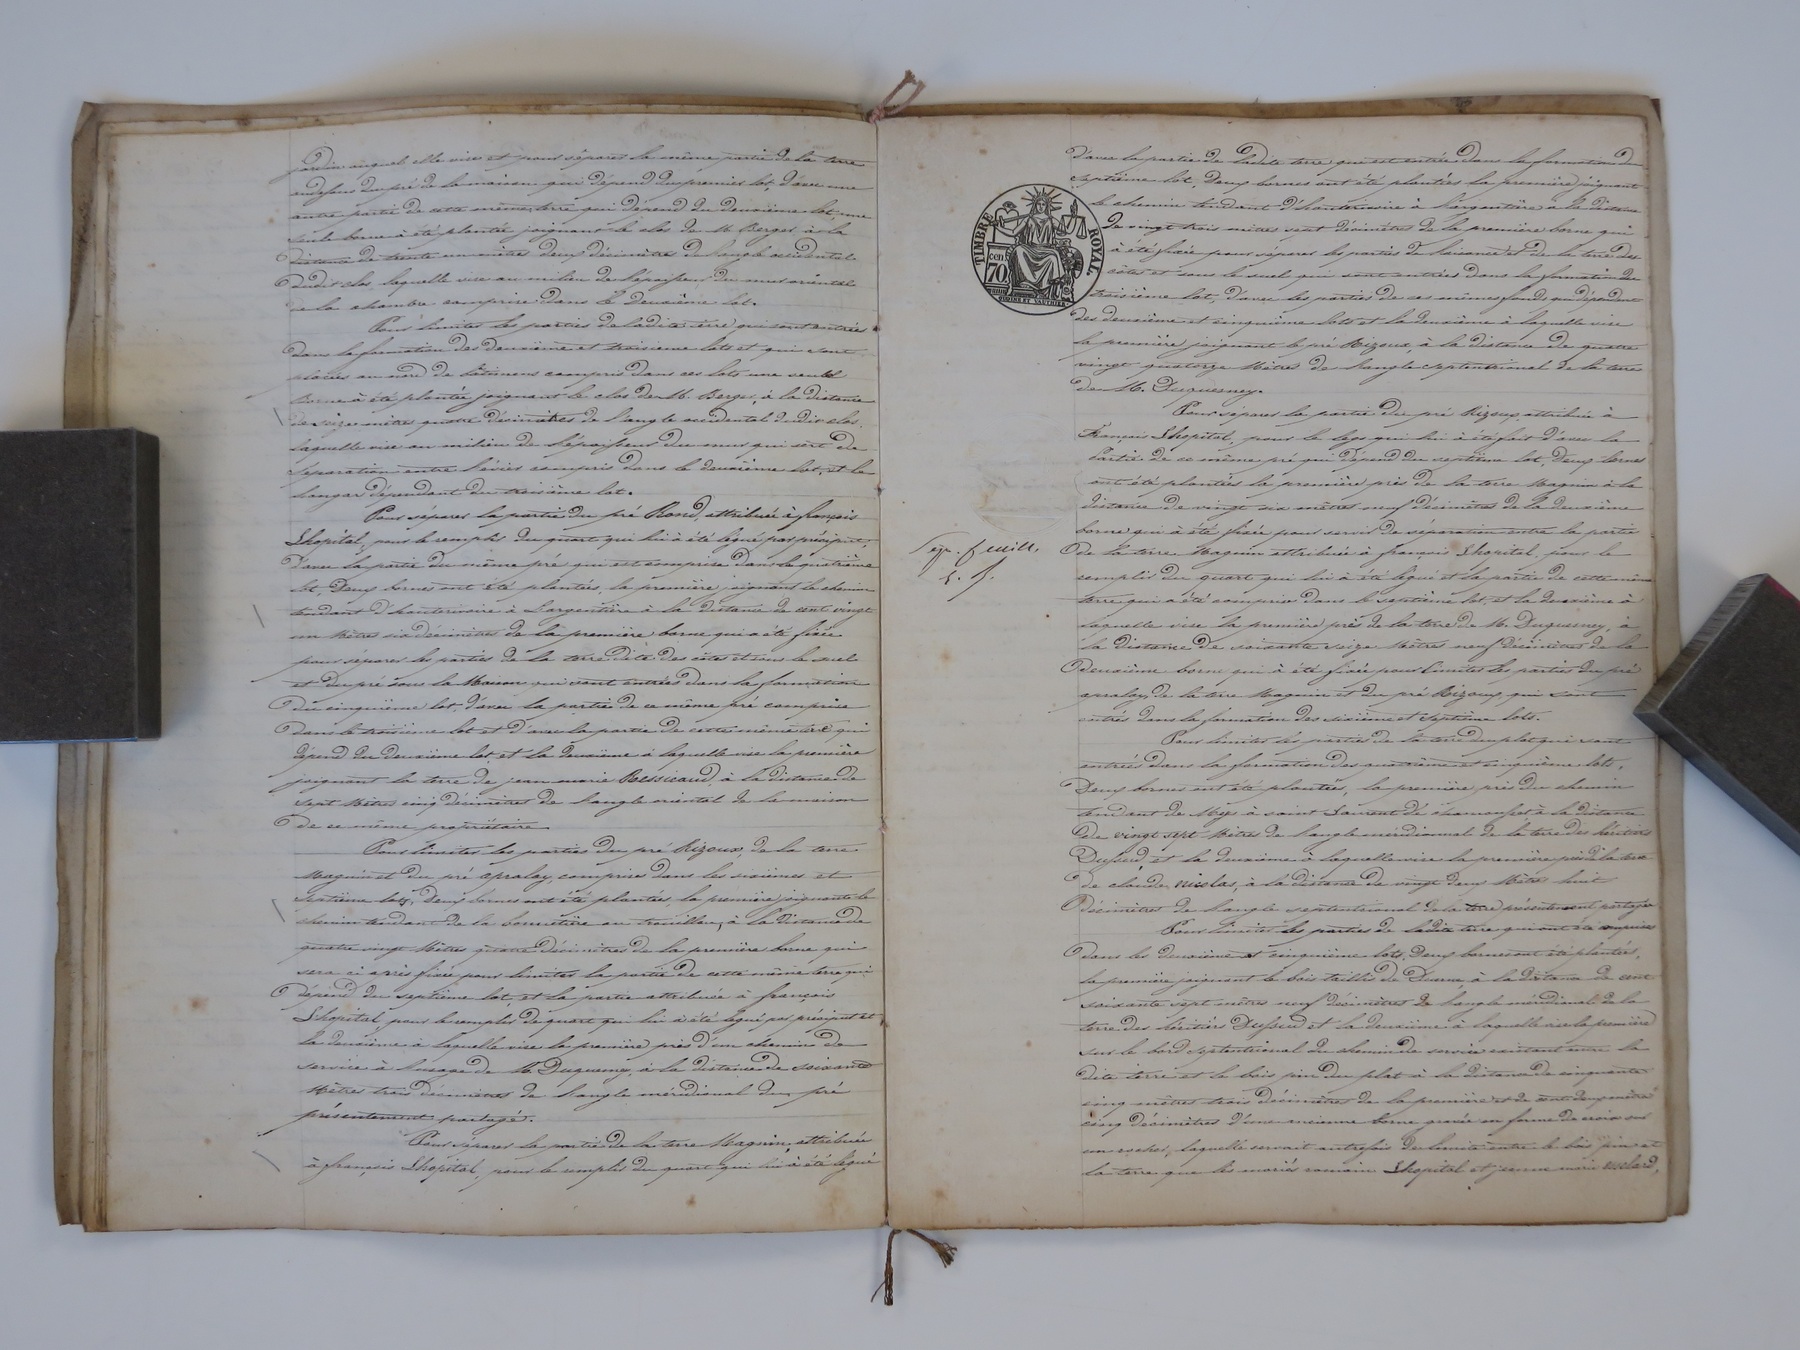 jardin auquel elle vise et pour séparer la même partie de la terre
au dessus du pré de la maison qui dépend du premier lot, d'avec une
autre partie de cette même terre qui dépend du deuxième lot, une
seule borne à été plantée joignant le clos de M. Berger, à la
distance de trente un mètres deux décimètres de l'angle occidental
dudit clos, laquelle vise au milieu de l'épaisseur du mur oriental
de la chambre comprise dans le deuxième lot.
Pour limiter les parties de ladite terre qui sont entrées
dans la formation des deuxième et troisième lots et qui sont
placées au nord de bâtimens compris dans ces lots une seule
borne à été plantée joignant le clos de M. Berger, à la distance
de seize mètres quatre décimètres de l'angle occidental dudit clos,
laquelle vise au milieu de l'épaisseur du mur qui sert de
séparation entre l'évier compris dans le deuxième lot, et le
hangar dépendant du troisième lot.
Pour séparer la partie du pré Rond, attribuée à françois
Lhopital, pour le remplir du quart qui lui à été légué par préciput,
d'avec la partie du même pré qui est comprise dans le quatrième
lot, Deux bornes ont été plantées, la première joignant le chemin
tendant d'hauterivoire à Largentière à la distance de cent vingt
un mètres six décimètres de la première borne qui a été fixée
pour séparer les parties de la terre dite des côtes et sous le suel
et du pré sous la Maison qui sont entrées dans la formation
du cinquième lot, d'avec la partie de ce même pré comprise
dans le troisième lot et d'avec la partie de cette même terre qui
dépend du deuxième lot, et la deuxième à laquelle vise la première
joignant la terre de jean marie Bessicaud, à la distance de
sept Mètres cinq décimètres de l'angle oriental de la maison
de ce même propriétaire.
Pour limiter les parties du pré Rizoux, de la terre
Magnin et du pré apralay, comprises dans les sixième et
septième lots, Deux bornes ont été plantées, la première joignante le
chemin tendant de la bonnetière au trouillou, à la distance de
quatre vingt Mètres quatre décimètres de la première borne qui
sera ci après fixée pour limiter la partie de cette même terre qui
dépend du septième lot, et la partie attribuée à françois
Lhopital, pour le remplir de quart qui lui à été légué par préciput et
la deuxième à laquelle vise la première près d'un chemin de
service à l'usage de M. Duquesney, à la distance de soixante
Mètres trois décimètres de l'angle méridional du pré
présentement partagé.
Pour séparer la partie de la terre Magnin, attribuée
à françois Lhopital, pour le remplir du quart qui lui à été légué
d'avec la partie de ladite terre qui est entrée dans la formation du
septième lot, Deux bornes ont été plantées la première joignant
le chemin tendant d'hauterivoire à Largentière à la distance
de vingt trois mètres sept décimètres de la première borne qui
à été fixée pour séparer les parties de l'aisance et de la terre des
côtes et sous le suel qui sont entrées dans la formation du
troisième lot, d'avec les parties de ces mêmes fonds qui dépendent
des deuxième et cinquième lots et la deuxième à laquelle vise
la première joignant le pré Rizoux, à la distance de quatre
vingt quatorze Mètres de l'angle septentrional de la terre
de M. Duquesney.
TIMBRE ROYAL.
cen
70
Pour séparer la partie du pré Rizoux, attribuée à
François Lhopital, pour le legs qui lui à été fait d'avec la
partie de ce même pré qui dépend du septième lot, Deux bornes
ont été plantées la première près de la terre Magnin à la
distance de vingt six mètres neuf décimètres de la deuxième
borne qui à été fixée pour servir de séparation entre la partie
de la terre Magnin attribuée à françois Lhopital, pour le
remplir du quart qui lui à été légué et la partie de cette même
terre qui a été comprise dans le septième lot, et la deuxième à
laquelle vise la première près de la terre de M. Duquesney, à
la distance de soixante seize Mètres neuf décimètres de la
deuxième borne qui à été fixée pour limiter les parties du pré
apralay, de la terre Magnin et du pré Rizoux, qui sont
entrés dans la formation des sixième et septième lots.
Pour limiter les parties de la terre du plat qui sont
entrées dans la formation des quatrième et cinquième lots,
Deux bornes ont été plantées, la première près du chemin
tendant de Mys à saint Laurent de chamousset à la distance
de vingt sept Mètres de l'angle méridional de la terre des héritiers
Dussud et la deuxième à laquelle vise la première près de la terre
de claude nicolas, à la distance de vingt deux Mètres huit
décimètres de l'angle septentrional de la terre présentement partagée
Pour limiter les parties de ladite terre qui ont été comprises
dans les deuxième et cinquième lots, Deux bornes ont été plantées,
la première joignant le bois taillis de Duerne, à la distance de cent
soixante sept mètres neuf décimètres de l'angle méridional de la
terre des héritiers Dussud et la deuxième à laquelle vise la première
sur le bord septentrional du chemin de service existant entre la
dite terre et le bois pin du plat à la distance de cinquante
cinq mètres trois décimètres de la première et de cent deux mètres
cinq décimètres d'une ancienne borne gravée en forme de croix sur
un rocher, laquelle servait autrefois de limite entre le bois pin et
la terre que les mariés romain Lhopital et jeanne marie